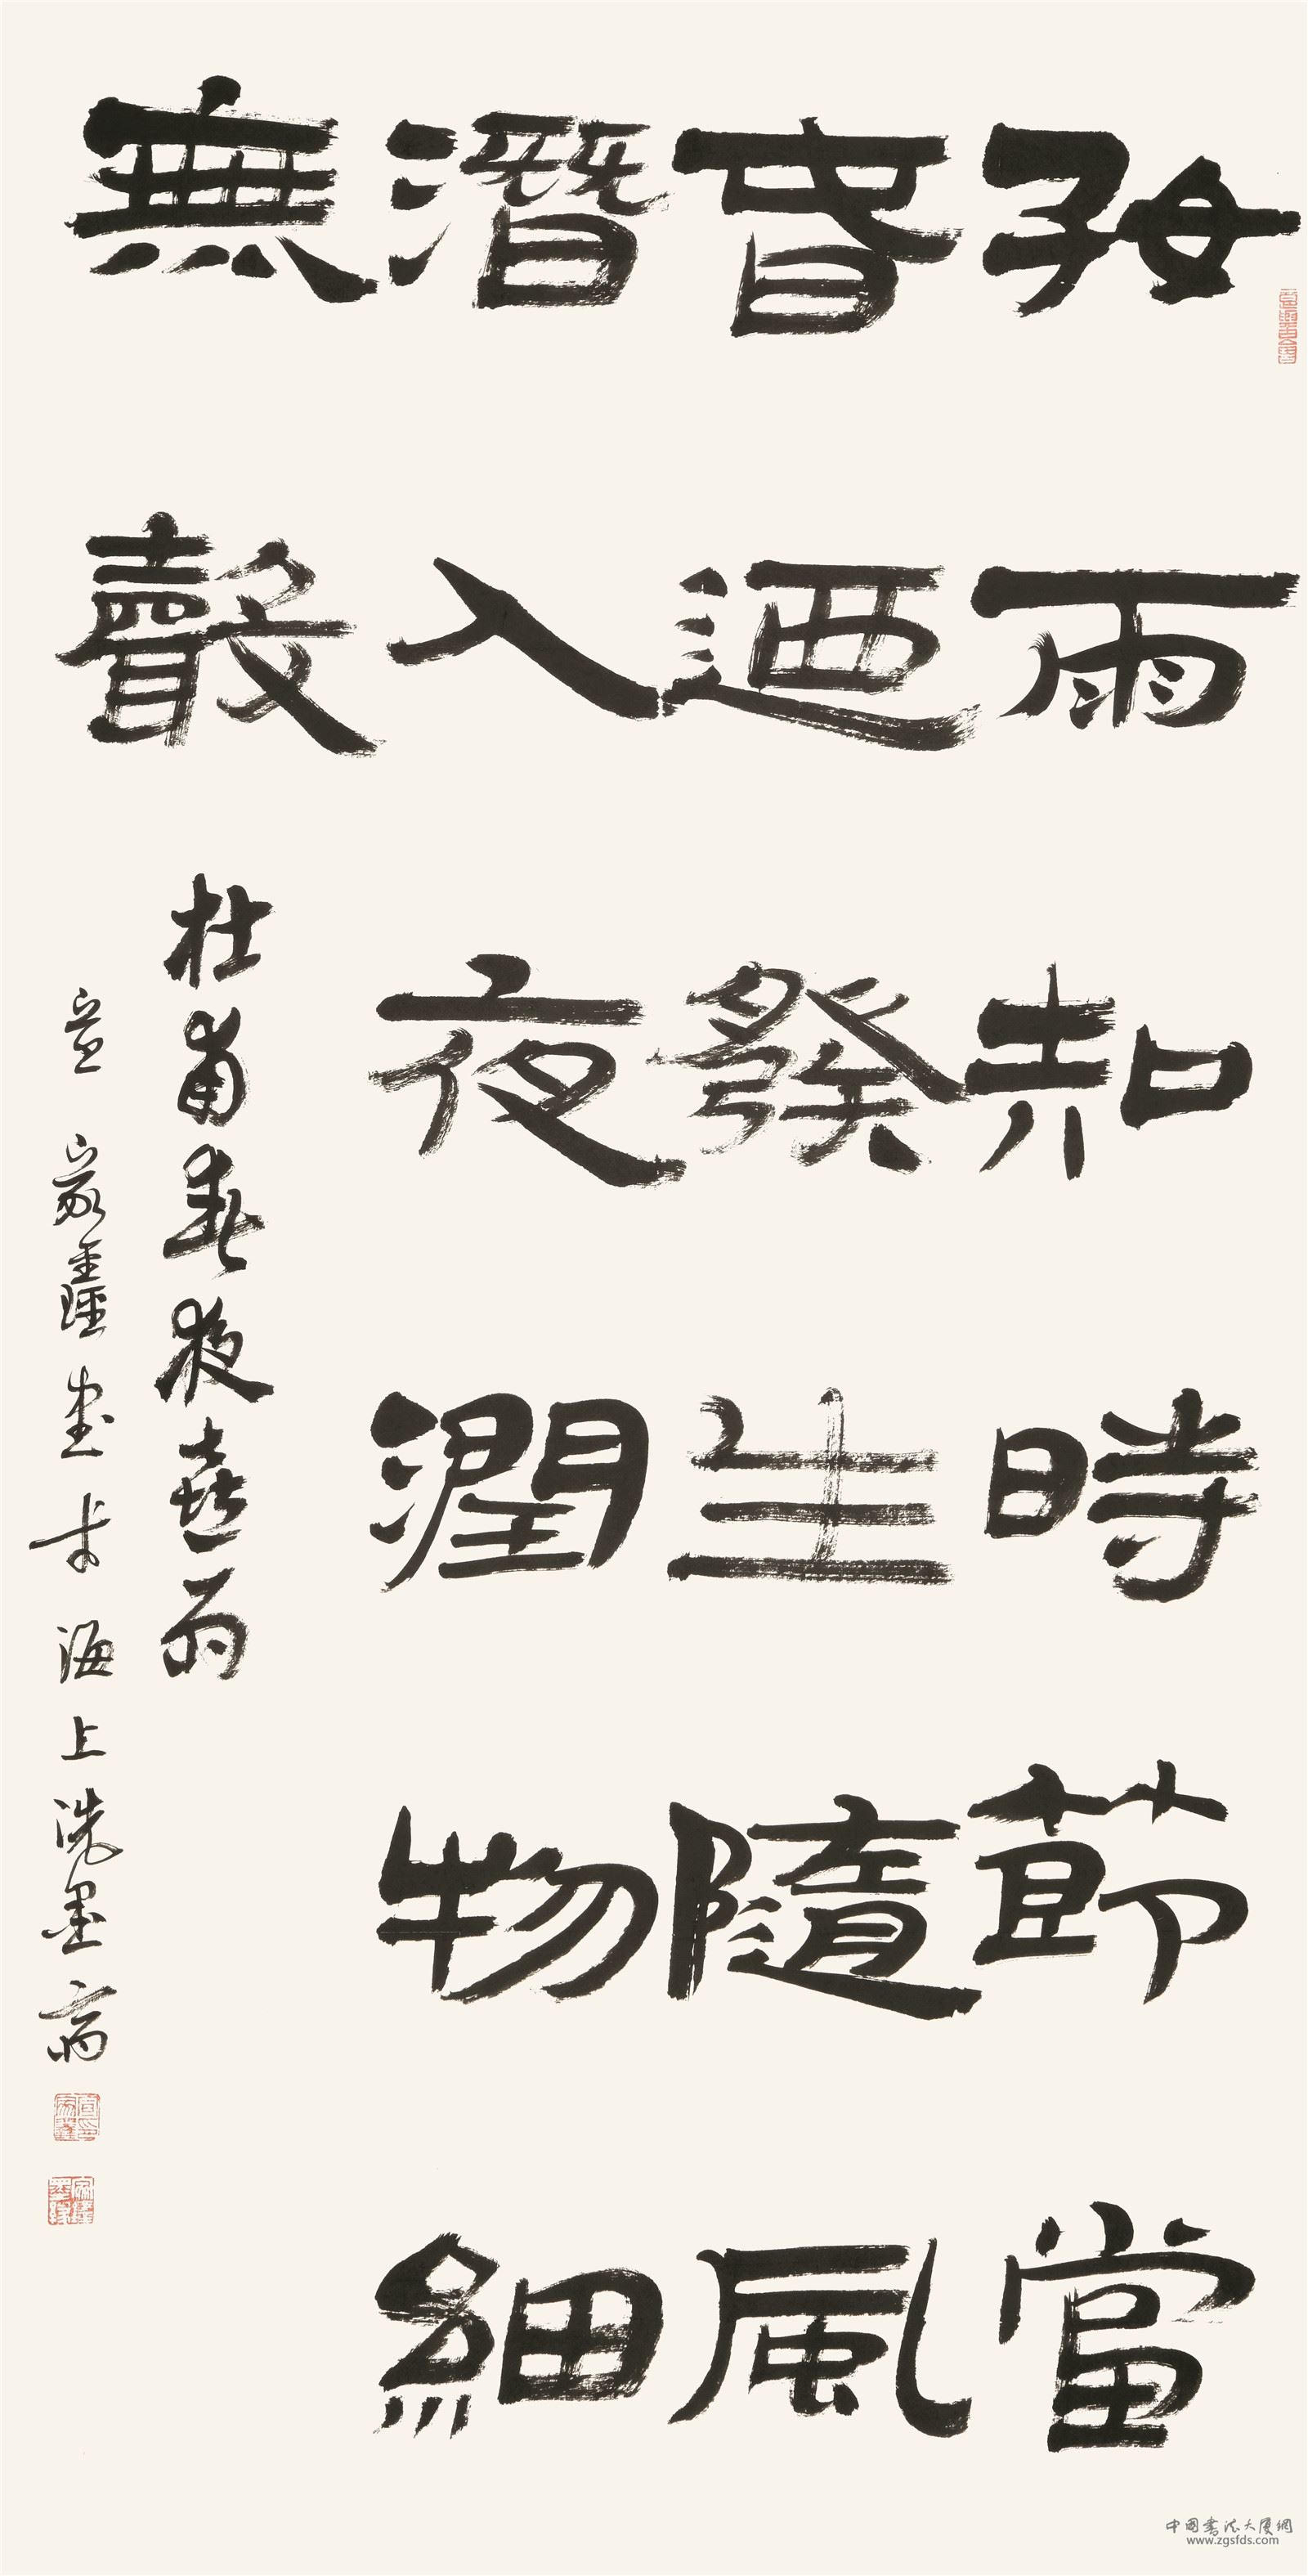 好雨知時節當
春迺發生隨風
潛入夜潤物細
無聲
杜甫春夜喜雨
宣家鑫書于海上洗墨齋
中国書法大厦網
www.zgsfds.com